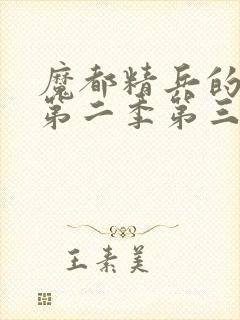 魔都精兵的
第二季第三
王素美